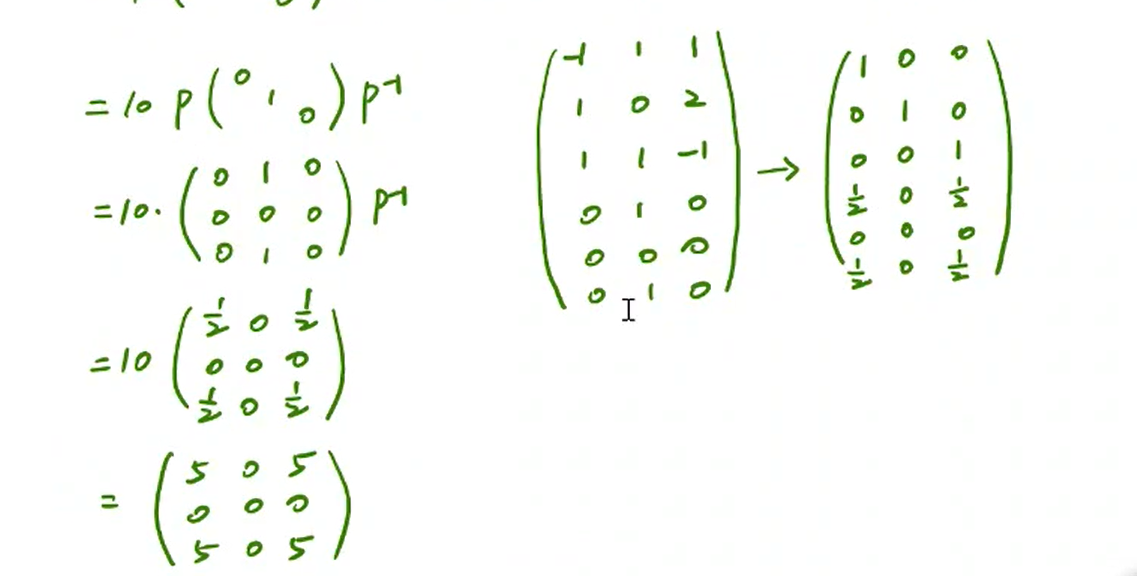 = 10 P ( 0 1 0 ) P⁻¹
= 10 · ( 0 1 0
0 0 0
0 1 0 ) P⁻¹
= 10 ( 1/2 0 1/2
0 0 0
1/2 0 1/2 )
= ( 5 0 5
0 0 0
5 0 5 )
( -1 1 1
1 0 2
1 1 -1
0 1 0
0 0 0
0 1 0 ) →
( 1 0 0
0 1 0
0 0 1
1/2 0 1/2
0 0 0
1/2 0 1/2 )